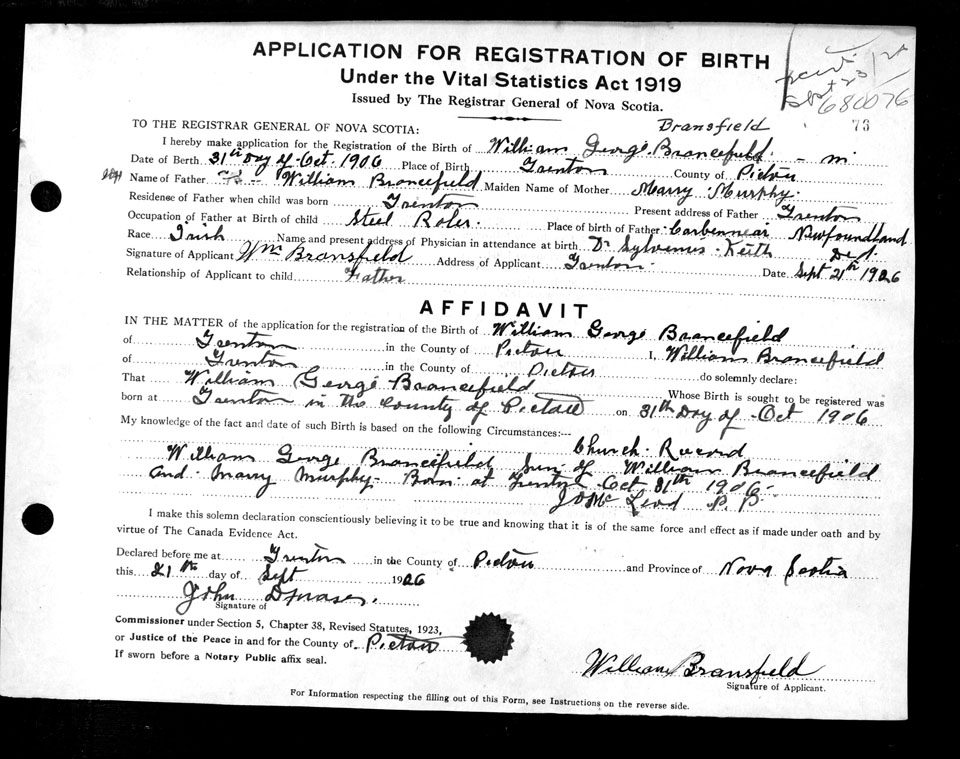 APPLICATION FOR REGISTRATION OF BIRTH
Under the Vital Statistics Act 1919
Issued by The Registrar General of Nova Scotia.
Sept 23/26
680076
73
TO THE REGISTRAR GENERAL OF NOVA SCOTIA:
Bransfield
I hereby make application for the Registration of the Birth of William George Brancefield - m
Date of Birth 31th Day of Oct 1906 Place of Birth Trenton County of Pictou
Name of Father William Brancefield Maiden Name of Mother Marry Murphy
Residense of Father when child was born Trenton Present address of Father Trenton
Occupation of Father at Birth of child Steel Roler Place of birth of Father Carbennear Newfoundland
Race Irish Name and present address of Physician in attendance at birth Dr Sylvenus Keith Ded.
Signature of Applicant Wm Bransfield Address of Applicant Trenton Date Sept 21th 1926
Relationship of Applicant to child Father
AFFIDAVIT
IN THE MATTER of the application for the registration of the Birth of William George Brancefield
of Trenton in the County of Pictou I, William Brancefield
of Trenton in the County of Pictou do solemnly declare:
That William George Brancefield Whose Birth is sought to be registered was
born at Trenton in the County of Pictou on 31th Day of Oct 1906
My knowledge of the fact and date of such Birth is based on the following Circumstances:--- Church Record
William George Brancefield Sun of William Brancefield
and Marry Murphy Born at Trenton Oct 31th 1906
McLeod P. P.
I make this solemn declaration conscientiously believing it to be true and knowing that it is of the same force and effect as if made under oath and by
virtue of The Canada Evidence Act.
Declared before me at Trenton in the County of Pictou and Province of Nova Scotia
this 21th day of Sept 1926
John D Fraser
Signature of
Commissioner under Section 5, Chapter 38, Revised Statutes, 1923,
or Justice of the Peace in and for the County of Pictou
If sworn before a Notary Public affix seal.
William Bransfield
Signature of Applicant.
For Information respecting the filling out of this Form, see Instructions on the reverse side.